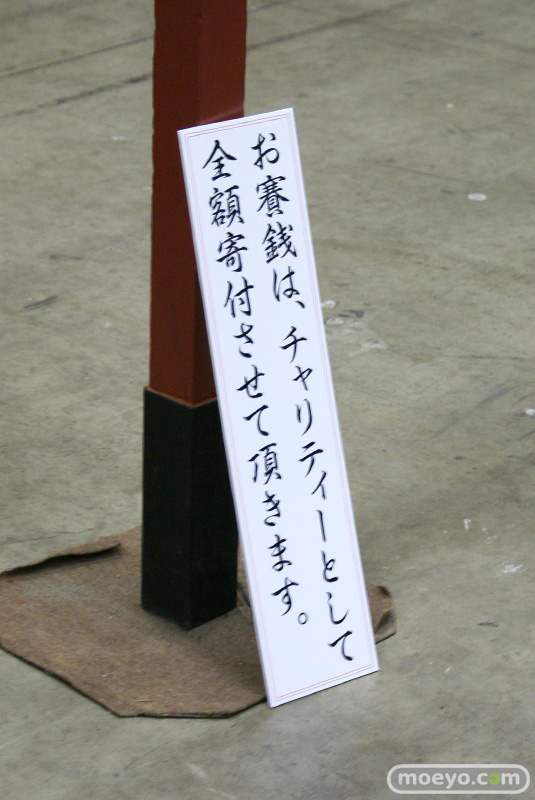 お賽銭は、チャリティーとして
全額寄付させて頂きます。
moeyo.com